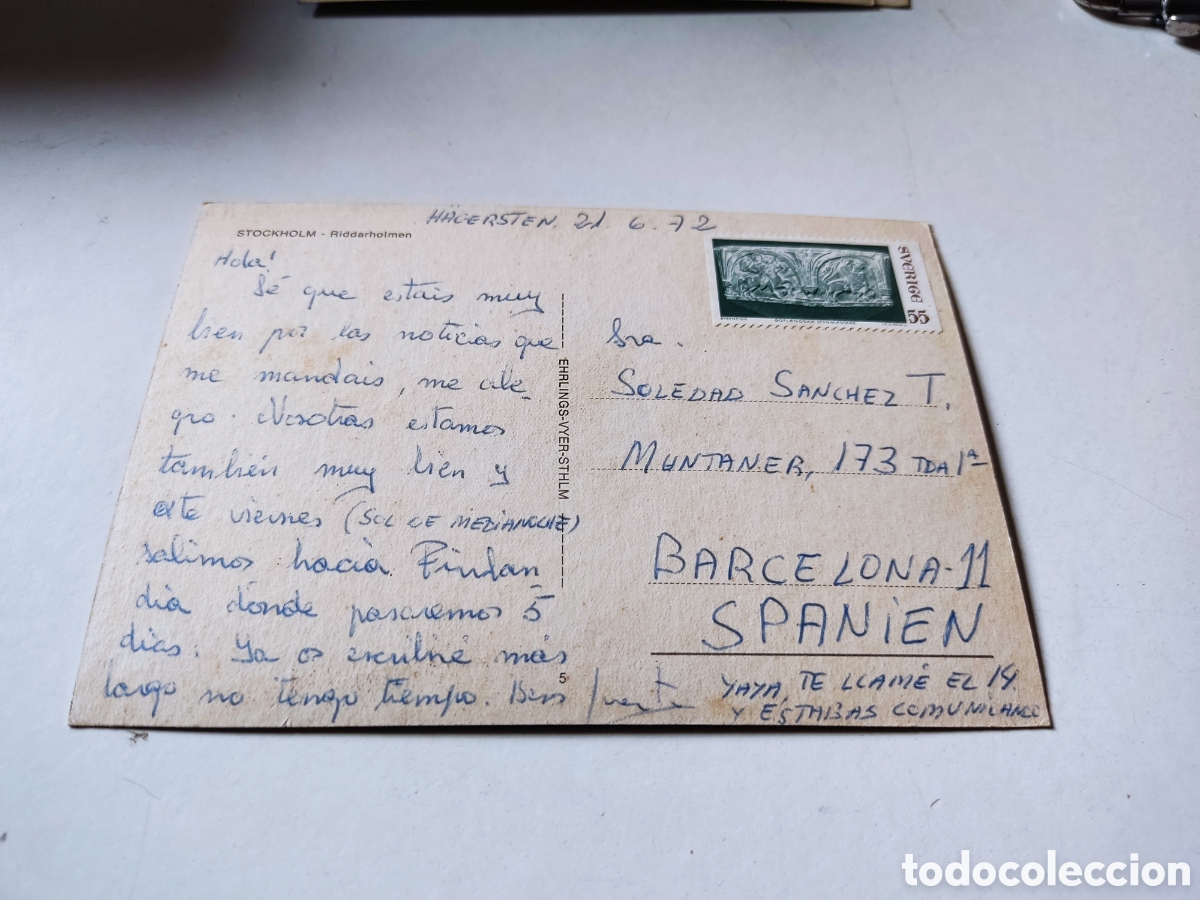 HÄGERSTEN. 21. 6. 72
STOCKHOLM - Riddarholmen
Hola!
Sé que estais muy
bien por las noticias que
me mandais, me ale-
gro. Nosotras estamos
también muy bien y
este viernes (SOL DE MEDIANOCHE)
salimos hacia Finlan-
dia dónde pasaremos 5
dias. Ya os escribiré más
largo no tengo tiempo. Bess
EHRLINGS-VYER-STHLM
5
SVERIGE 55
Sra.
SOLEDAD SANCHEZ T.
MUNTANER, 173 TDA 1ª
BARCELONA-11
SPANIEN
YAYA, TE LLAMÉ EL 14
Y ESTABAS COMUNICANDO
todocoleccion